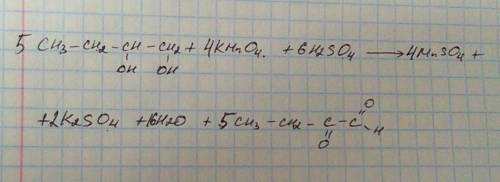 5 CH3-CH2-CH-CH2 + 4KMnO4. + 6H2SO4 ⟶ 4MnSO4 +
OH OH
+2K2SO4 +16H2O + 5CH3-CH2-C-C
O
H
O